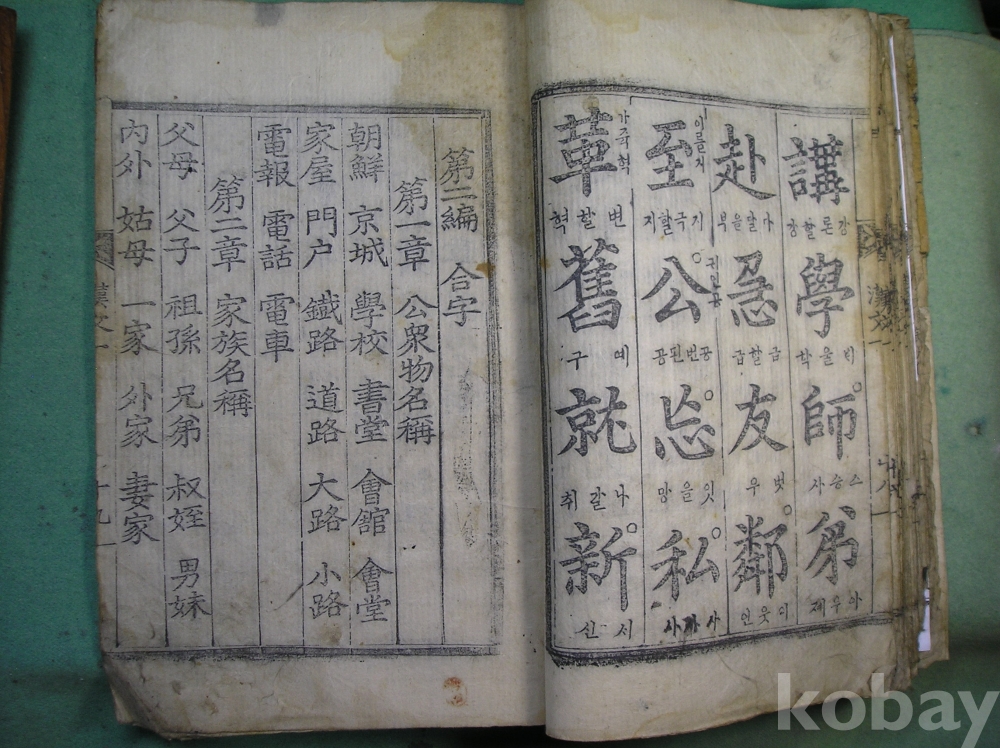 講 강론할강
學 ᄇᆡ울학
師 스승사
弟 아우제
赴 다달을부
急 급할급
友 벗우
鄰 이웃인
至 이를지 지극할지
公 귀인공 공번된공
忘 잇을망
私 사사사
革 가죽혁 변할혁
舊 예구
就 나갈취
新 ᄉᆡ신
第二編 合字
第一章 公衆物名稱
朝鮮 京城 學校 書堂 會舘 會堂
家屋 門户 鐵路 道路 大路 小路
電報 電話 電車
第二章 家族名稱
父母 父子 祖孫 兄弟 叔姪 男妹
內外 姑母 一家 外家 妻家
漢文一 十九
kobay